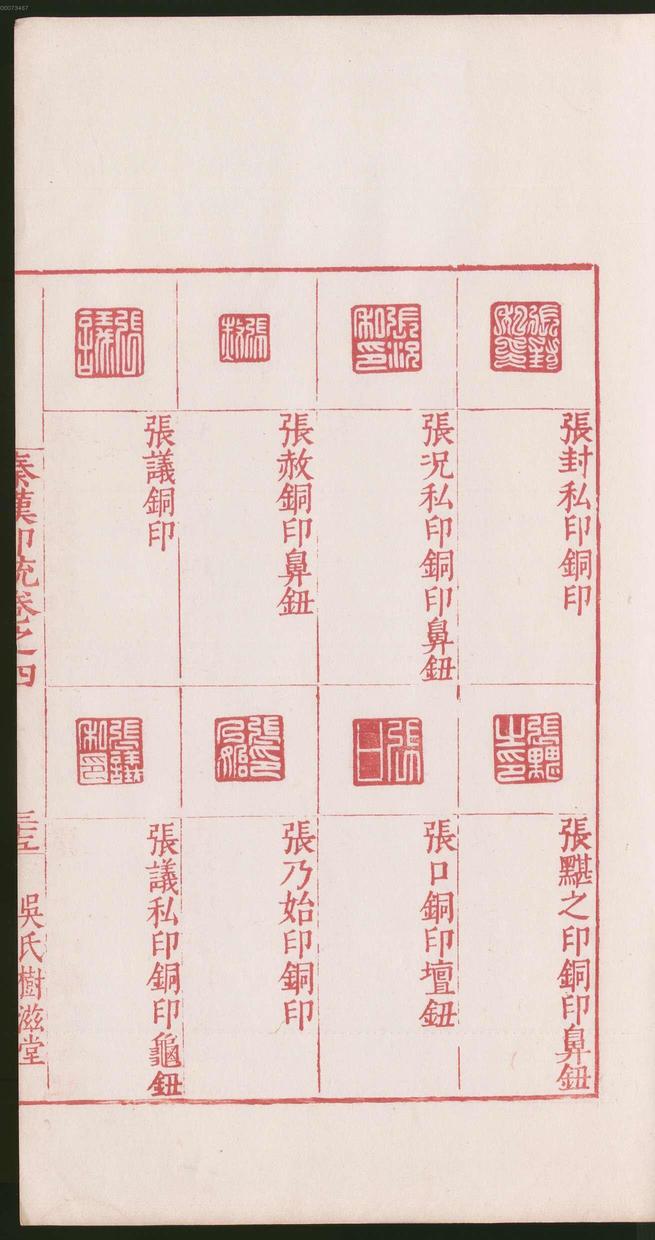 張封私印銅印
張況私印銅印鼻鈕
張赦銅印鼻鈕
張議銅印
張黮之印銅印鼻鈕
張口銅印壇鈕
張乃始印銅印
張議私印銅印龜鈕
秦漢印統卷之四
吳氏樹滋堂
00073467